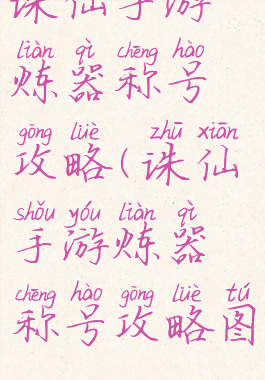 诛仙手游
liàn qì chēng hào
炼器称号
gōng lüè zhū xiān
攻略(诛仙
shǒu yóu liàn qì
手游炼器
chēng hào gōng lüè tú
称号攻略图